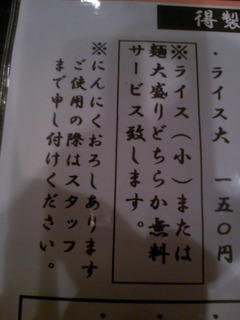 得製
・ライス大 一五〇円
※ライス(小)または
麺大盛りどちらか無料
サービス致します。
※にんにくおろしあります
ご使用の際はスタッフ
まで申し付けください。